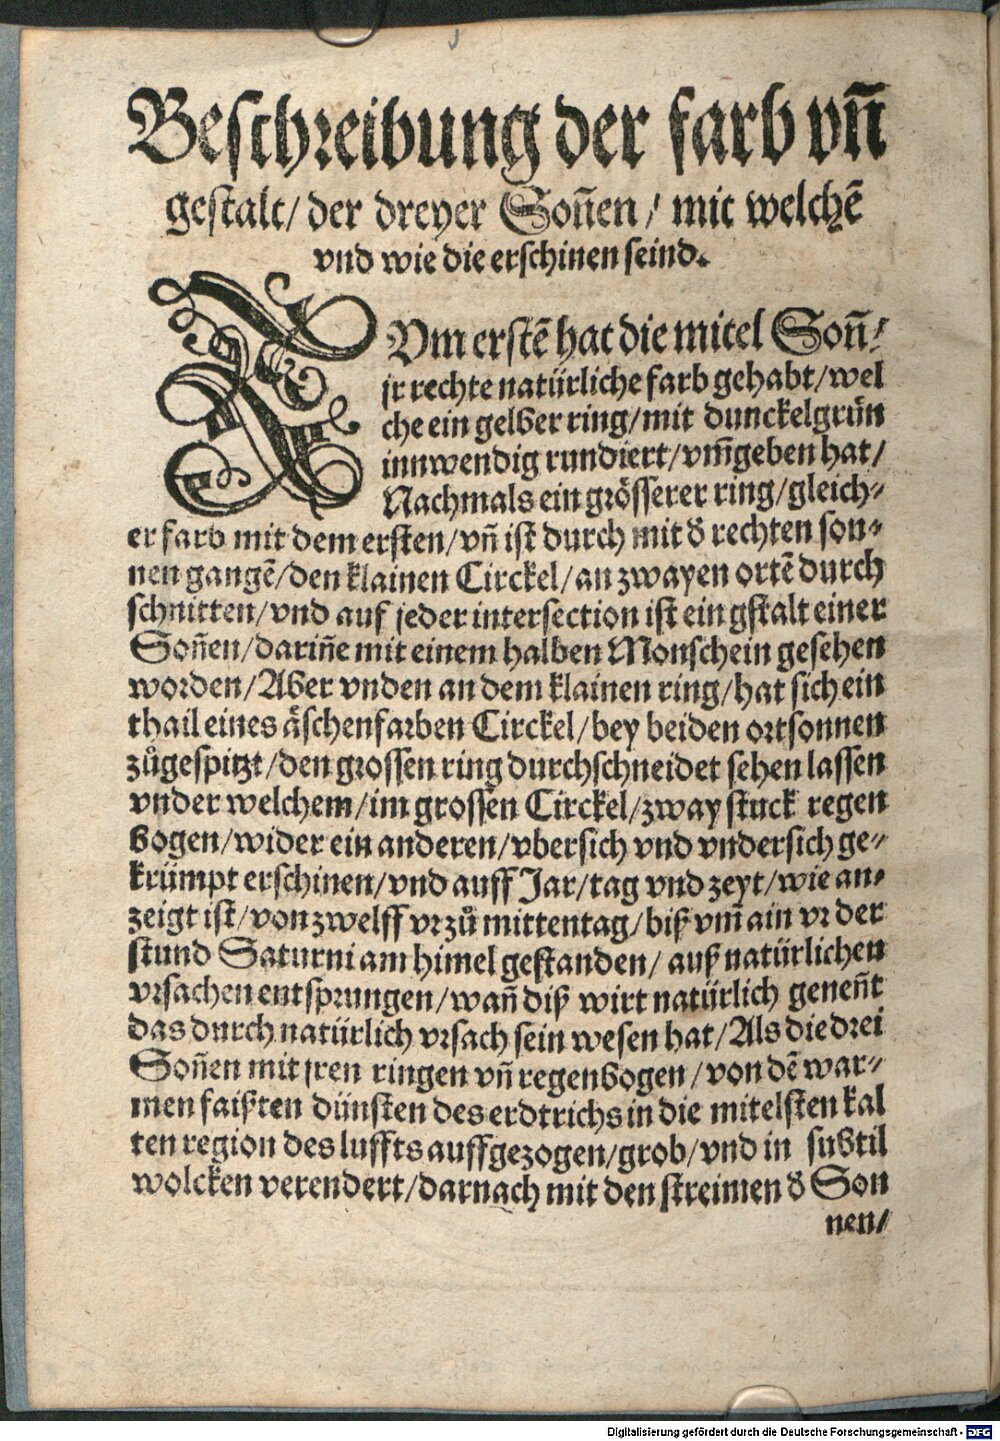 Beschreibung der farb vñ
gestalt/ der dreyer Soñen/ mit welchẽ
vnd wie die erschinen seind.
ZVm erstẽ hat die mitel Soñ/
jr rechte natürliche farb gehabt/wel
che ein gelber ring/mit dunckelgrün
innwendig rundiert/vm̃geben hat/
Nachmals ein grösserer ring/gleich-
er farb mit dem ersten/vñ ist durch mit d̕ rechten son-
nen gangẽ/den klainen Circkel/an zwayen ortẽ durch
schnitten/vnd auf jeder intersection ist ein gstalt einer
Soñen/dariñe mit einem halben Monschein gesehen
worden/Aber vnden an dem klainen ring/hat sich ein
thail eines äschenfarben Circkel/bey beiden ortsonnen
zůgespitzt/den grossen ring durchschneidet sehen lassen
vnder welchem/im grossen Circkel/zway stuck regen
bogen/wider ein anderen/vbersich vnd vndersich ge-
krümpt erschinen/vnd auff Jar/tag vnd zeyt/wie an-
zeigt ist/von zwelff vr zů mittentag/biß vm̃ ain vr der
stund Saturni am himel gestanden/ auß natürlichen
vrsachen entsprungen/wañ diß wirt natürlich geneñt
das durch natürlich vrsach sein wesen hat/Als die drei
Soñen mit jren ringen vñ regenbogen/von dẽ war-
men faißten dünsten des erdtrichs in die mitelsten kal
ten region des luffts auffgezogen/grob/vnd in subtil
wolcken verendert/darnach mit den streimen d̕ Son
nen/
Digitalisierung gefördert durch die Deutsche Forschungsgemeinschaft - DFG